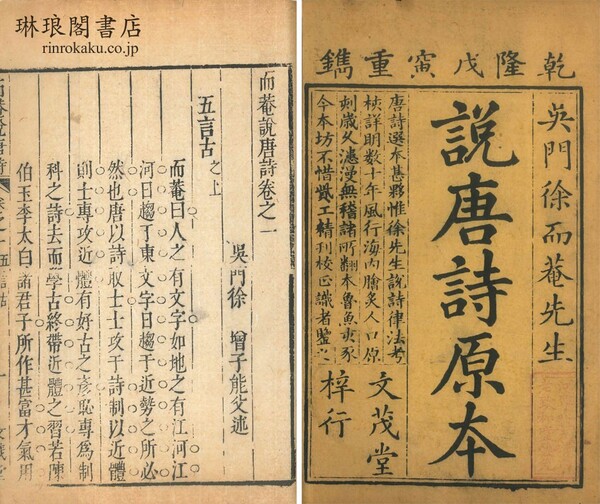 琳琅閣書店
rinrokaku.co.jp
乾隆戊寅重鐫
吳門徐而菴先生
說唐詩原本
唐詩選本甚夥惟徐先生說詩律法考
核詳明數十年風行海內膾炙人口原
刻歲久漶漫無稽諸所翻本魯魚亥豕
今本坊不惜貲工精刊校正識者鑒之
文茂堂
梓行
而菴說唐詩卷之一
吳門徐 增子能父述
五言古之上
而菴曰人之有文字如地之有江河江
河日趨于東文字日趨于近勢之所必
然也唐以詩取士士攻于詩制以近體
則士專攻近體有好古之彥恥專為制
科之詩去而學古終帶近體之習若陳
伯玉李太白諸君子所作甚富才氣用